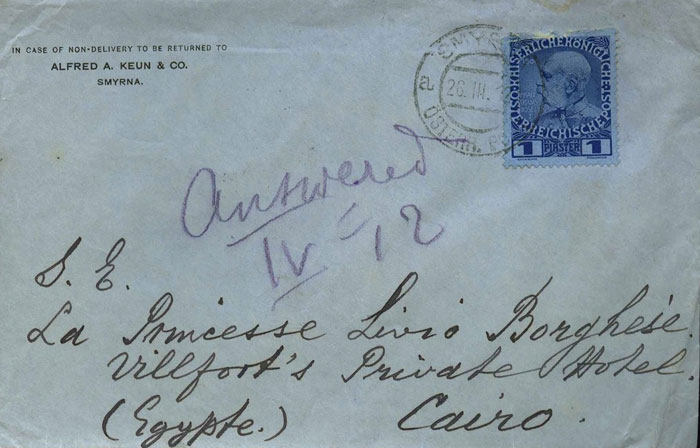 IN CASE OF NON-DELIVERY TO BE RETURNED TO
ALFRED A. KEUN & CO.
SMYRNA.
26. III.
ÖSTERR. P
KAISERLICHE KÖNIGLICHE
ÖSTERREICHISCHE POST
1 PIASTER 1
Answered
IV - 12
S. E.
La Princesse Livio Borghése.
Villfort's Private Hotel.
(Egypte.) Cairo.